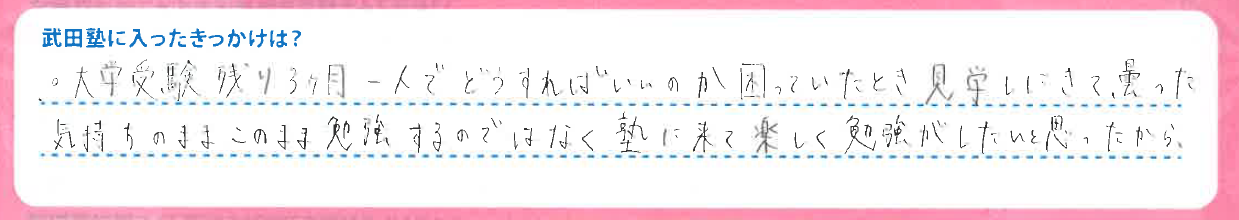 武田塾に入ったきっかけは?
。大学受験残り3ヶ月 一人でどうすればいいのか困っていたとき見学しにきて、曇った
気持ちのままこのまま勉強するのではなく塾に来て楽しく勉強がしたいと思ったから、